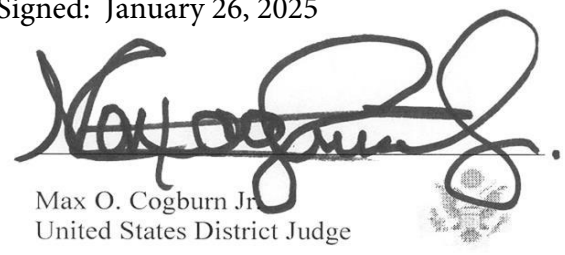 Signed: January 26, 2025
Max O. Cogburn Jr.
United States District Judge